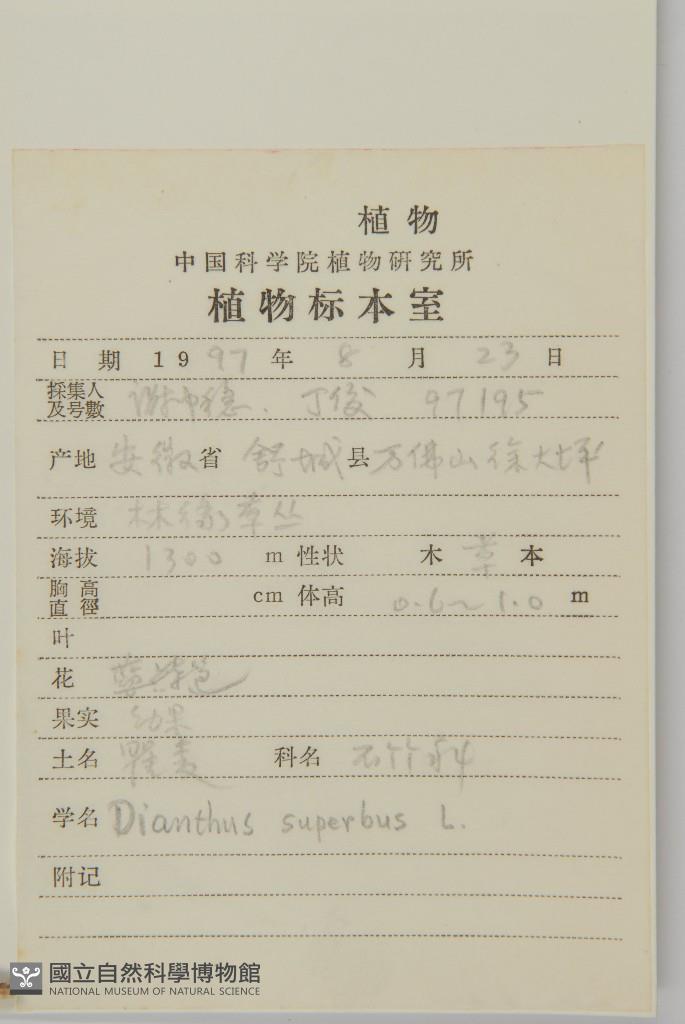 植物
中国科学院植物研究所
植物标本室
日期 1997年 8月 23日
採集人及号數 谢中稳、丁俊 97195
产地 安徽省 舒城县 万佛山徐大坪
环境 林缘草丛
海拔 1300 m 性状 木 草 本
胸高直徑 cm 体高 0.6~1.0 m
叶
花 蓝紫色
果实 幼果
土名 瞿麦 科名 石竹科
学名 Dianthus superbus L.
附记
國立自然科學博物館
NATIONAL MUSEUM OF NATURAL SCIENCE